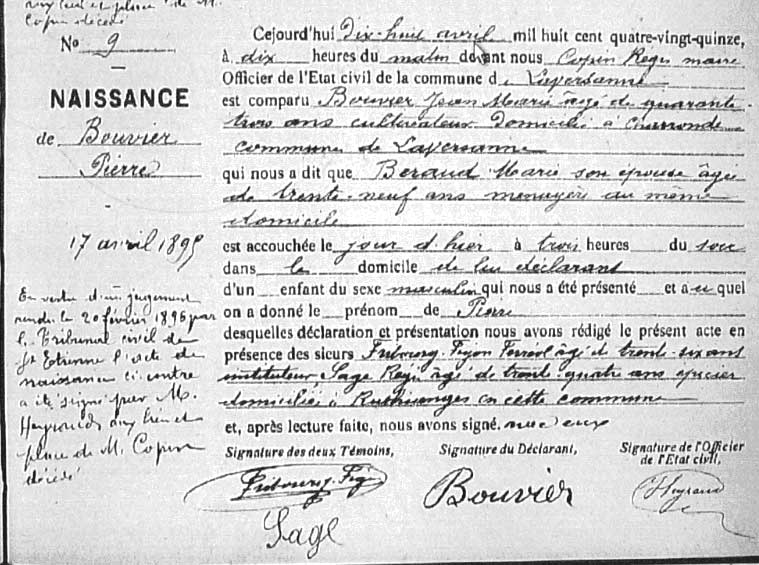 Copin décédé
No 9
NAISSANCE
de Bouvier
Pierre
17 avril 1895
En vertu d'un jugement
rendu le 20 février 1896 par
le Tribunal civil de
St Etienne l'acte de
naissance ci contre
a été signé par M.
Heyraud aux lieu et
place de M. Copin
décédé
Cejourd'hui dix-huit avril mil huit cent quatre-vingt-quinze,
à dix heures du matin devant nous Copin Régis maire
Officier de l'Etat civil de la commune de Laversanne
est comparu Bouvier Jean Marie âgé de quarante-
trois ans cultivateur domicilié à
commune de Laversanne
qui nous a dit que Beraud Marie son épouse âgée
de trente-neuf ans menagère au même
domicile
est accouchée le jour d'hier à trois heures du soir
dans le domicile de lui déclarant
d'un enfant du sexe masculin qui nous a été présenté et a-u quel
on a donné le prénom de Pierre
desquelles déclaration et présentation nous avons rédigé le présent acte en
présence des sieurs Fribourg-Figon âgé de trente-six ans
instituteur, Sage Régis âgé de trente-quatre ans épicier
domiciliés à Ruthianges en cette commune
et, après lecture faite, nous avons signé. avec eux
Signature des deux Témoins, Signature du Déclarant, Signature de l'Officier
de l'Etat civil,
Fribourg-Figon Bouvier Heyraud
Sage